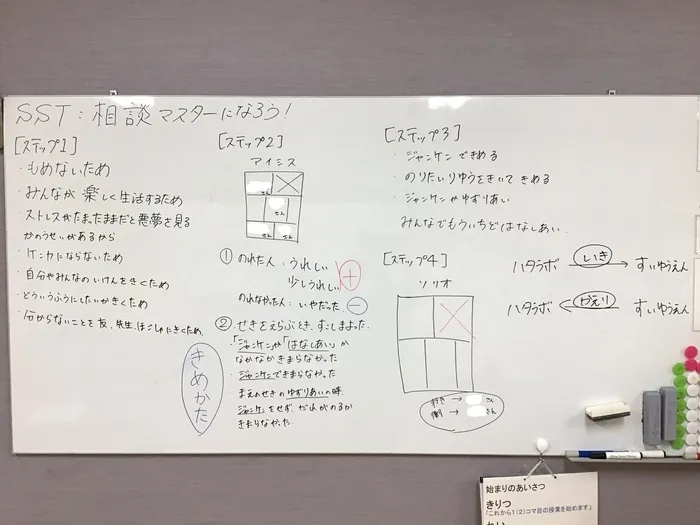 SST：相談マスターになろう！
[ステップ1]
・もめないため
・みんなが楽しく生活するため
・ストレスがたまったままだと悪夢を見る
かのうせいがあるから
・ケンカにならないため
・自分やみんなのいけんをきくため
・どういうふうにしたいかきくため
・分からないことを友、先生、ほごしゃにきくため
きめかた
[ステップ2]
アイミス
さん
さん
さん
さん
① のれた人：うれしい
少しうれしい
＋
のれなかった人：いやだった
－
② せきをえらぶとき、すこしまよった。
・「ジャンケン」や「はなしあい」が
なかなかきまらなかった
・ジャンケンできまらなかった
まえのせきのゆずりあいの時
ジャンケンをせず、だれがのるか
きまらなかった。
[ステップ3]
・ジャンケンできめる
・のりたいりゆうをきいてきめる
・ジャンケンやゆずりあい
みんなでもういちどはなしあい。
[ステップ4]
ソリオ
行き → さん
帰り → さん
ハタラボ いき → すいゆうえん
ハタラボ ← かえり すいゆうえん
始まりのあいさつ
きりつ
「これから1(2)コマ目の授業を始めます」